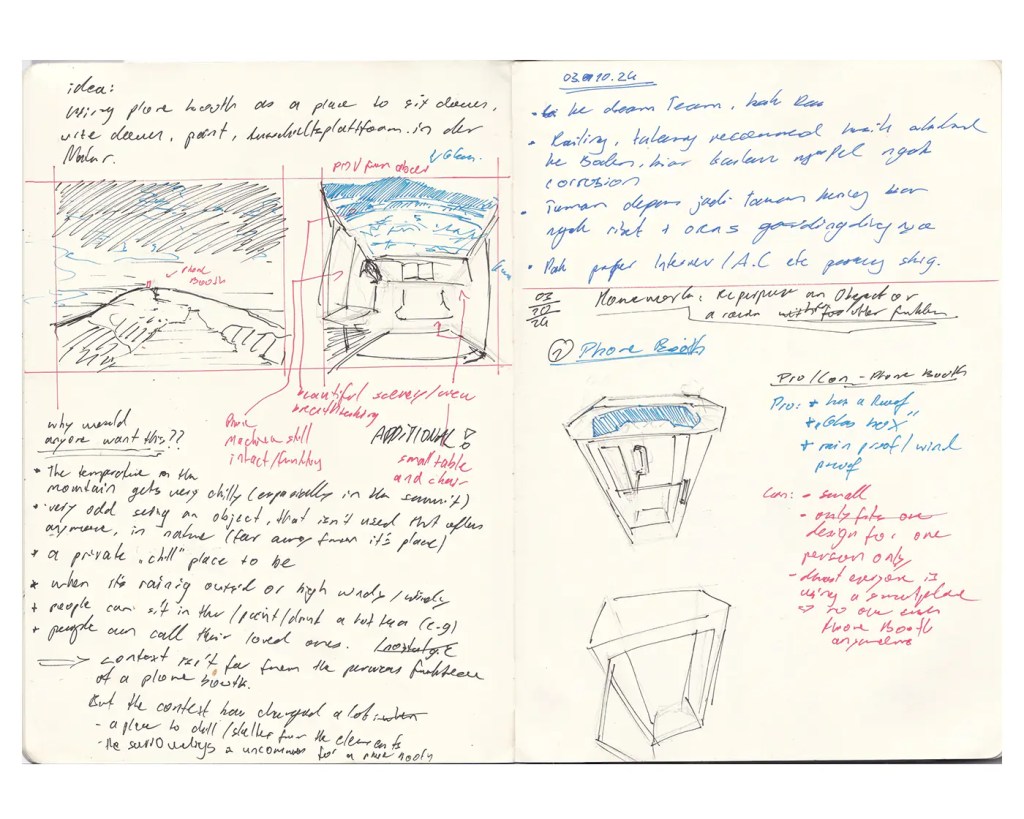 idea:
Using phone booth as a place to sit down,
write down, paint, in der
Natur.
POV from above
Glass
phone
Booth
beautiful scenery/even
breathtaking
Phone
Machine still
intact/function
ADDITIONAL!
small table
and chair
why would
anyone want this??
* The temperature on the
mountain gets very chilly (especially in the summit)
* very odd seeing an object, that isn't used that often
anymore, in nature (far away from it's place)
* a private "chill" place to be
* when it's rainig outside or high winds/windy
+ people can sit in there/paint/drink a hot tea (e.g)
+ people can call their loved ones.
⇒ context isn't far from the previous funktion
of a phone booth.
But the context has changed a lot
- a place to chill/shelter from the elements
- the surroundings a uncommon for a phone booth
03.10.24
ke dream Team, Pak
Railing, recommend
ke Boden, biar ngak
corrosion
Taman depan jadi taman kering
ngak ribet +
Pak Internet/A.C etc
03
10
24
Homework: Repurpose an Object or
a room for other funktion
1 Phone Booth
Pro/Con - Phone Booth
Pro: + has a Roof
+ "Glass box"
+ rain proof/wind
proof
Con: - small
- only fits one
design for one
person only
- almost everyone is
using a smartphone
⇒ no one uses
Phone Booth
anymore